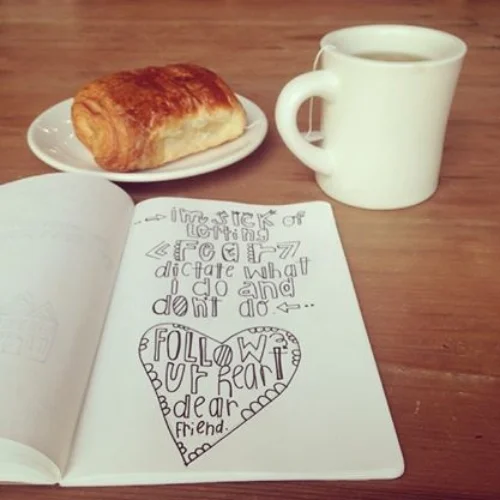 I'm SICK OF
LETTING
FEAR
dictate what
I do AND
dont do.
FOLLOW
UR heart
dear
FRIEND.